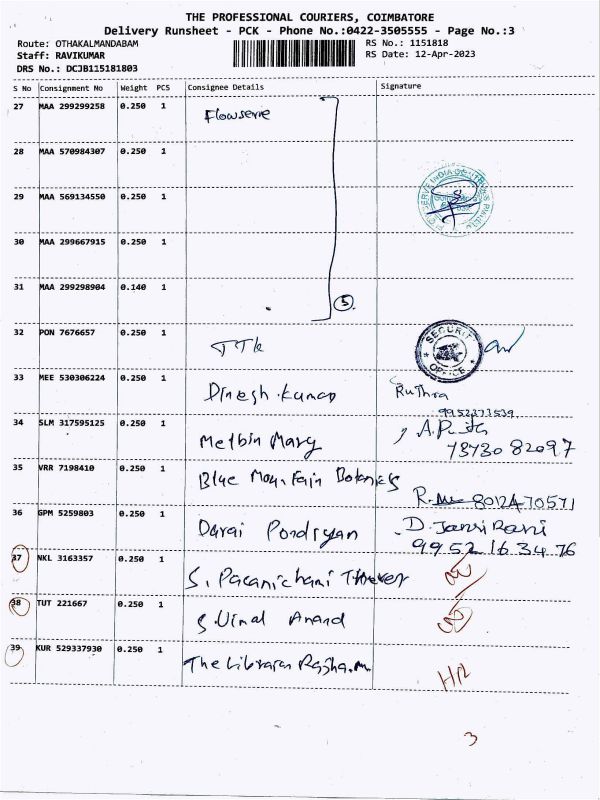 THE PROFESSIONAL COURIERS, COIMBATORE
Delivery Runsheet - PCK - Phone No.:0422-3505555 - Page No.:3
Route: OTHAKALMANDABAM RS No.: 1151818
Staff: RAVIKUMAR RS Date: 12-Apr-2023
DRS No.: DCJB115181803
S No Consignment No Weight PCS Consignee Details Signature
27 MAA 299299258 0.250 1 Flowserve
28 MAA 570984307 0.250 1
29 MAA 569134550 0.250 1
30 MAA 299667915 0.250 1
31 MAA 299298904 0.140 1 5
32 PON 7676657 0.250 1 TTK SECURITY OFFICE
33 MEE 530306224 0.250 1 Dinesh.kumar Ruthra
34 SLM 317595125 0.250 1 Melbin Mary
73730 82097
35 VRR 7198410 0.250 1 Blue Mountain Botanicls
8012470571
36 GPM 5259803 0.250 1 Darai Pondiyan D. Jansi Rani
9952163476
37 NKL 3163357 0.250 1 S. Pacanichami Thever
38 TUT 221667 0.250 1 S. Vimal Anand
39 KUR 529337930 0.250 1 The Librarian
3